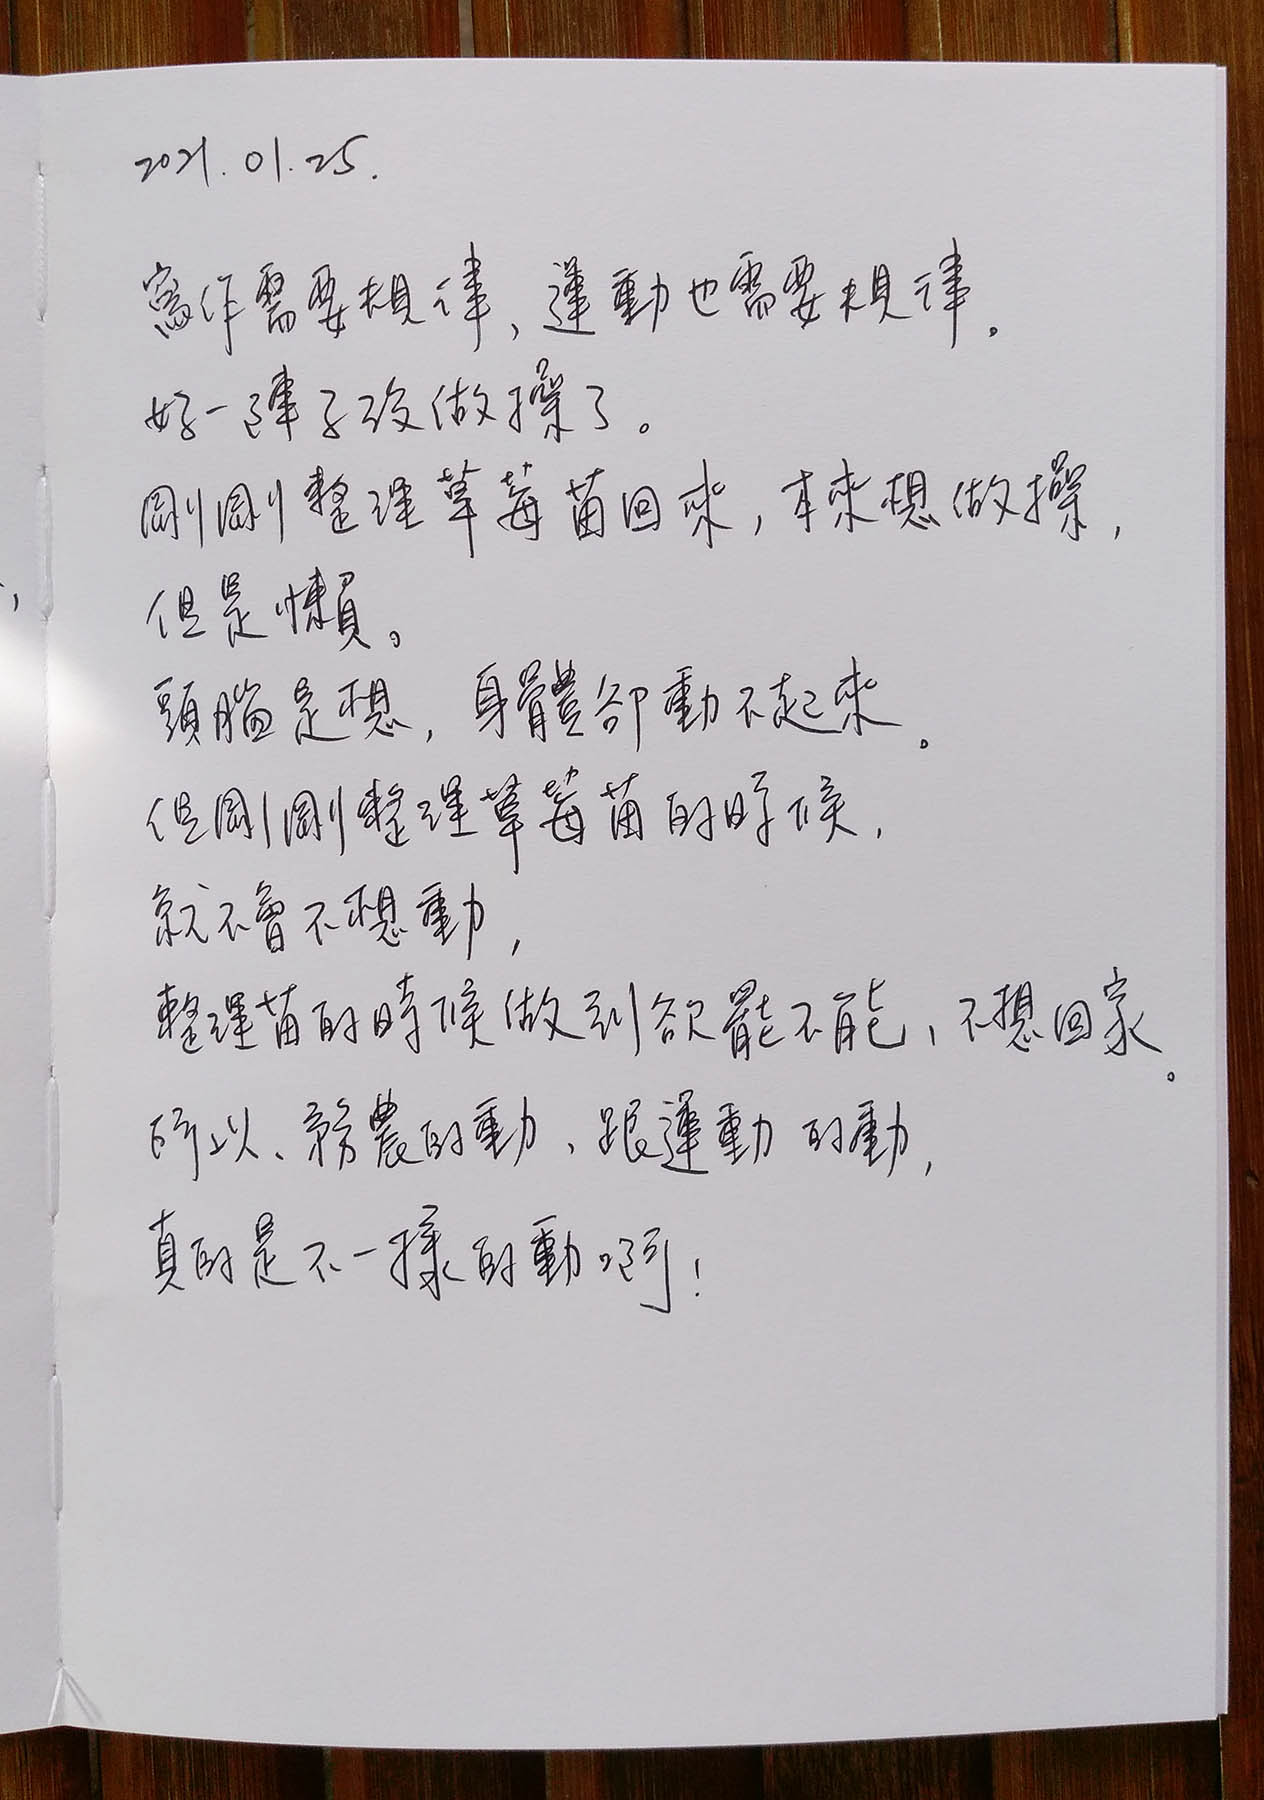 2021.01.25.
寫作需要規律,運動也需要規律。
好一陣子沒做操了。
剛剛整理草莓苗回來,本來想做操,
但是懶。
頭腦是想,身體卻動不起來。
但剛剛整理草莓苗的時候,
就不會不想動,
整理苗的時候做到欲罷不能、不想回家。
所以、務農的動、跟運動的動,
真的是不一樣的動啊!